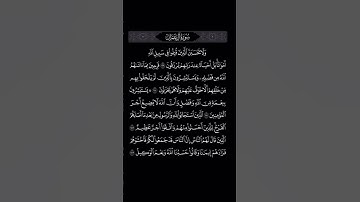 سُورَةُ آلِ عِمْرَانَ
وَلَا تَحْسَبَنَّ ٱلَّذِينَ قُتِلُوا۟ فِى سَبِيلِ ٱللَّهِ
أَمْوَٰتًۢا بَلْ أَحْيَآءٌ عِندَ رَبِّهِمْ يُرْزَقُونَ فَرِحِينَ بِمَآ ءَاتَىٰهُمُ
ٱللَّهُ مِن فَضْلِهِۦ وَيَسْتَبْشِرُونَ بِٱلَّذِينَ لَمْ يَلْحَقُوا۟ بِهِم
مِّنْ خَلْفِهِمْ أَلَّا خَوْفٌ عَلَيْهِمْ وَلَا هُمْ يَحْزَنُونَ ۞ يَسْتَبْشِرُونَ
بِنِعْمَةٍ مِّنَ ٱللَّهِ وَفَضْلٍ وَأَنَّ ٱللَّهَ لَا يُضِيعُ أَجْرَ
ٱلْمُؤْمِنِينَ ٱلَّذِينَ ٱسْتَجَابُوا۟ لِلَّهِ وَٱلرَّسُولِ مِنۢ بَعْدِ مَآ أَصَابَهُمُ
ٱلْقَرْحُ لِلَّذِينَ أَحْسَنُوا۟ مِنْهُمْ وَٱتَّقَوْا۟ أَجْرٌ عَظِيمٌ
ٱلَّذِينَ قَالَ لَهُمُ ٱلنَّاسُ إِنَّ ٱلنَّاسَ قَدْ جَمَعُوا۟ لَكُمْ فَٱخْشَوْهُمْ
فَزَادَهُمْ إِيمَٰنًا وَقَالُوا۟ حَسْبُنَا ٱللَّهُ وَنِعْمَ ٱلْوَكِيلُ